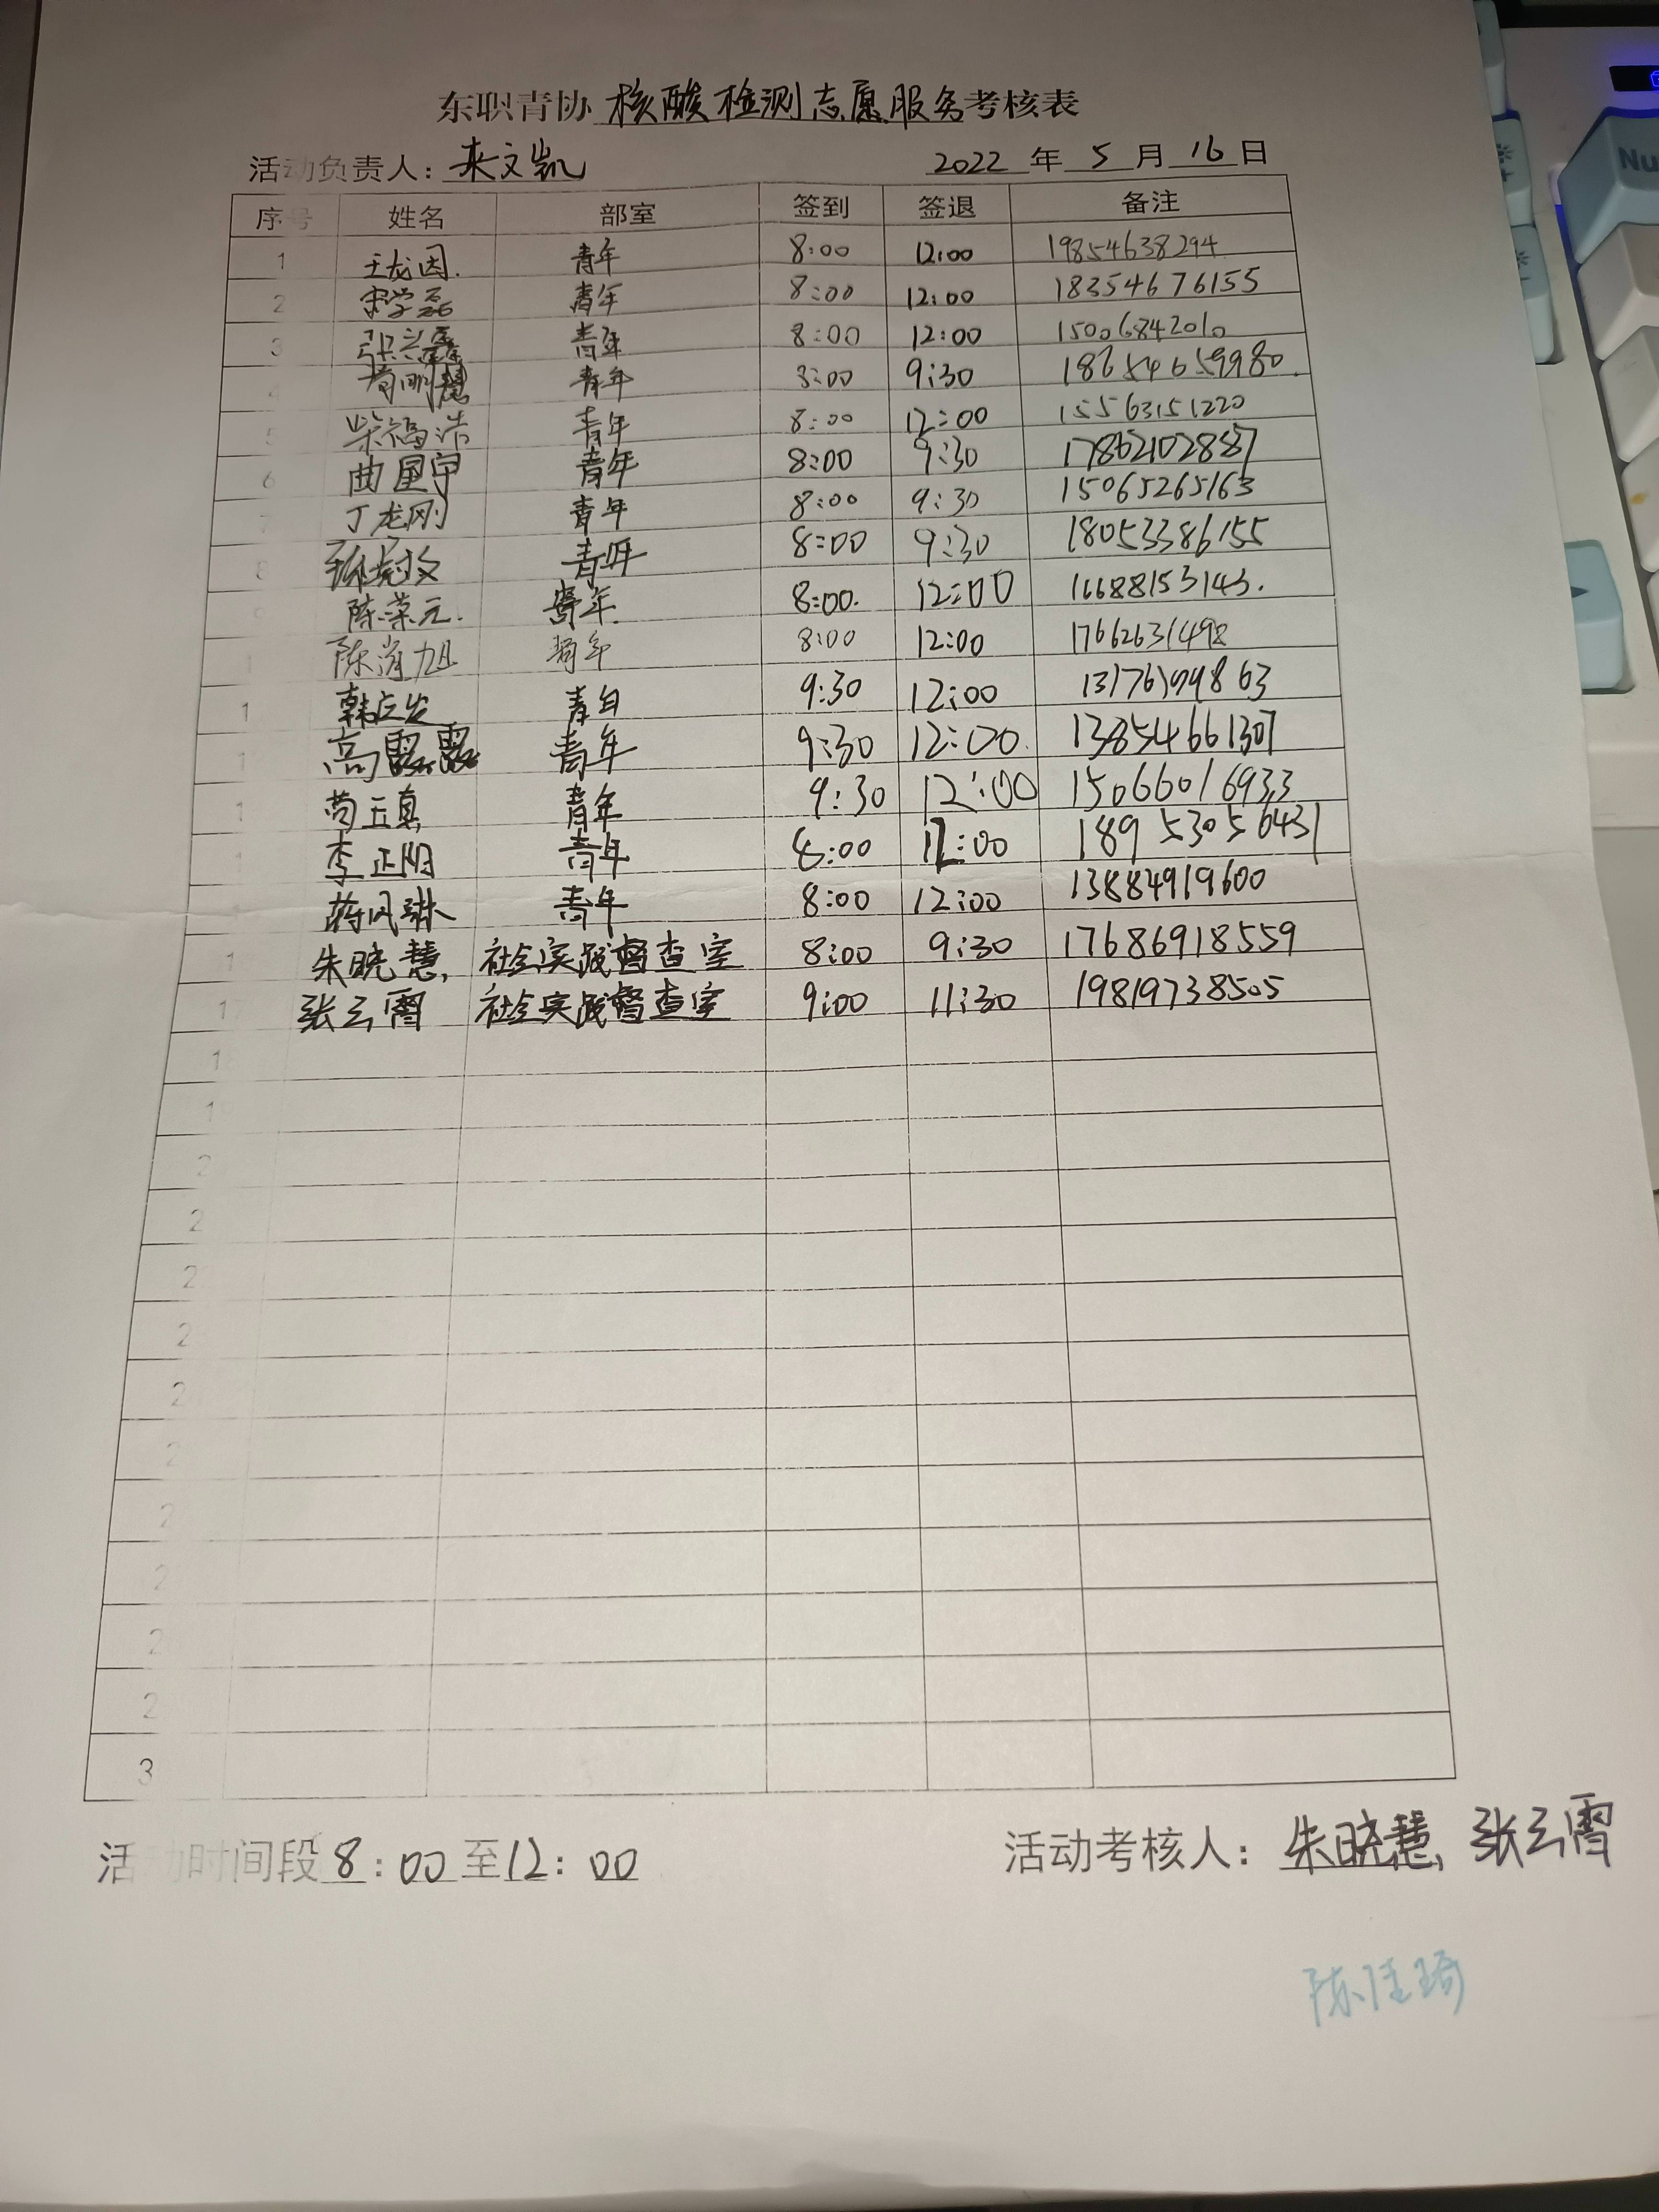 东职青协 核酸检测志愿服务考核表
活动负责人： 来文凯 2022 年 5 月 16 日
序号 姓名 部室 签到 签退 备注
1 王龙因 青年 8:00 12:00 19854638294
2 宋学磊 青年 8:00 12:00 18354676155
3 青年 8:00 12:00 15006842010
4 苟明慧 青年 8:00 9:30 18654659980
5 柴福浩 青年 8:00 12:00 15563151220
6 曲星宇 青年 8:00 9:30 17862102887
7 丁龙刚 青年 8:00 9:30 15065265163
8 青年 8:00 9:30 18053386155
9 陈荣元 青年 8:00 12:00 16688153143
1 陈肖旭 青年 8:00 12:00 17662631498
1 9:30 12:00
1 高露露 青年 9:30 12:00 13854661307
1 苟玉真 青年 9:30 12:00 15066016933
1 李正阳 青年 8:00 12:00 18953056431
1 蒋风琳 青年 8:00 12:00 13884919600
1 朱晓慧 社会实践督查室 8:00 9:30 17686918559
1 张云霄 社会实践督查室 9:00 11:30 19819738505
1
1
2
2
2
2
2
2
2
2
2
2
3
活动时间段 8:00 至 12:00 活动考核人： 朱晓慧, 张云霄
陈佳琦